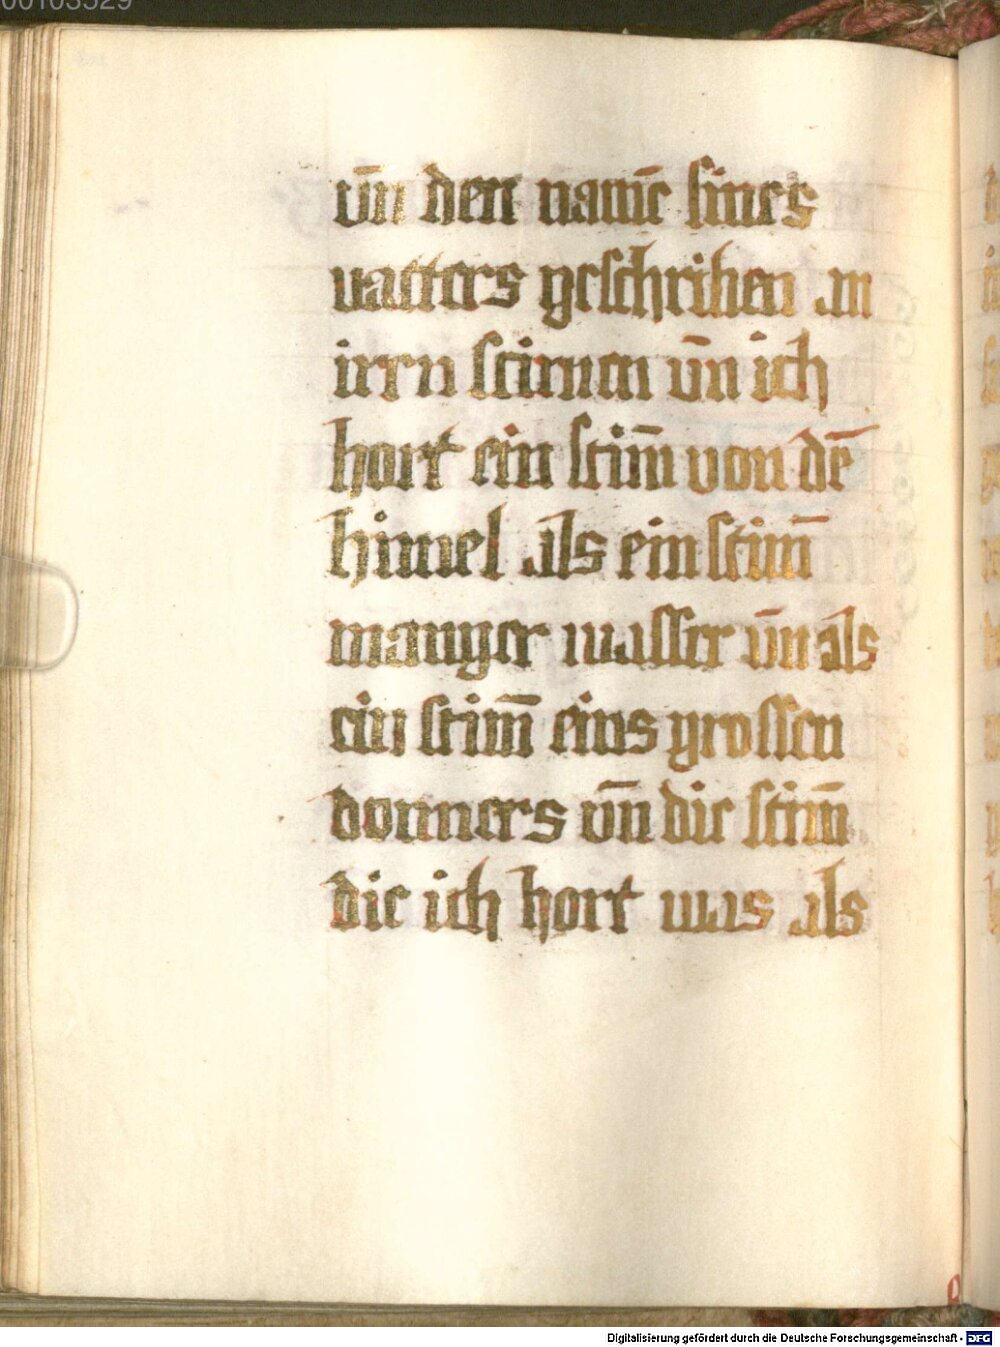 00103529
vn̄ den namē sines
vatters geschriben an
irrn stirnen vn̄ ich
hort ein stim̄ von dē
himel als ein stim̄
manger wasser vn̄ als
ein stim̄ eins grossen
donners vn̄ die stim̄
die ich hort was als
Digitalisierung gefördert durch die Deutsche Forschungsgemeinschaft - DFG